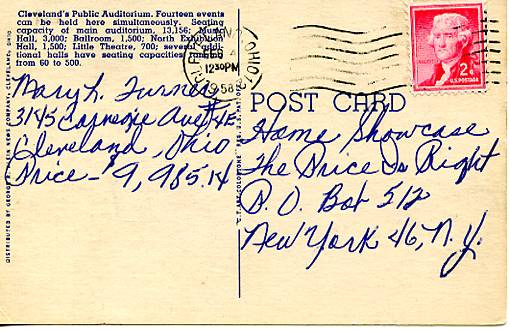 Cleveland's Public Auditorium. Fourteen events
can be held here simultaneously. Seating
capacity of main auditorium, 13,156; Music
Hall, 3,000; Ballroom, 1,500; North Exhibition
Hall, 1,500; Little Theatre, 700; several addi-
tional halls have seating capacities ranging
from 60 to 500.
Mary L. Turner
3145 Carnegie Ave #4E
Cleveland, Ohio
Price - $9,985.14
CLEVELAND OHIO
FEB 4
12 30 PM
1958
2¢
U.S. POSTAGE
POST CARD
Home Showcase
The Price Is Right
P. O. Box 512
New York 46, N.Y.